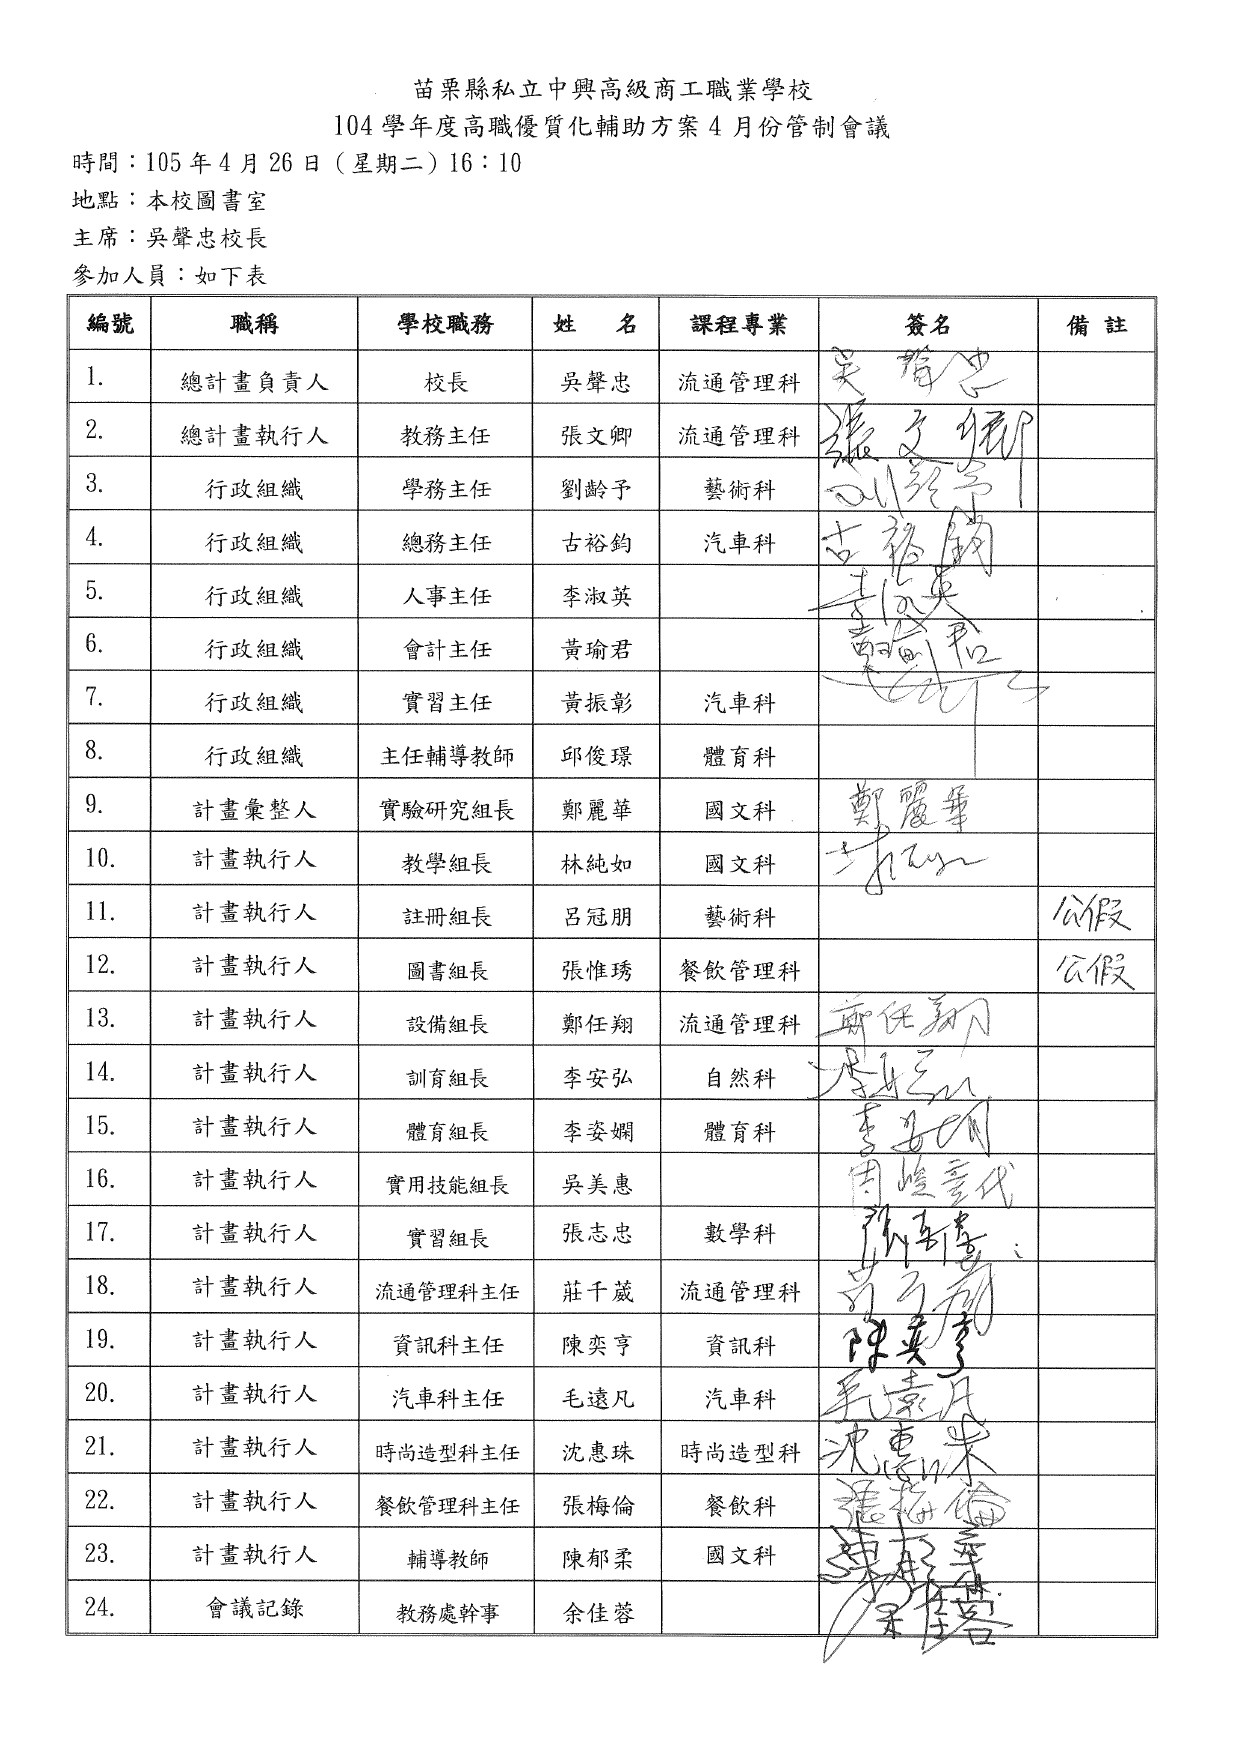 苗栗縣私立中興高級商工職業學校
104 學年度高職優質化輔助方案 4 月份管制會議
時間：105 年 4 月 26 日（星期二）16：10
地點：本校圖書室
主席：吳聲忠校長
參加人員：如下表
編號 職稱 學校職務 姓 名 課程專業 簽名 備註
1. 總計畫負責人 校長 吳聲忠 流通管理科 吳聲忠
2. 總計畫執行人 教務主任 張文卿 流通管理科 張文卿
3. 行政組織 學務主任 劉齡予 藝術科 劉齡予
4. 行政組織 總務主任 古裕鈞 汽車科 古裕鈞
5. 行政組織 人事主任 李淑英 李淑英
6. 行政組織 會計主任 黃瑜君 黃瑜君
7. 行政組織 實習主任 黃振彰 汽車科
8. 行政組織 主任輔導教師 邱俊璟 體育科
9. 計畫彙整人 實驗研究組長 鄭麗華 國文科 鄭麗華
10. 計畫執行人 教學組長 林純如 國文科
11. 計畫執行人 註冊組長 呂冠朋 藝術科 公假
12. 計畫執行人 圖書組長 張惟琇 餐飲管理科 公假
13. 計畫執行人 設備組長 鄭任翔 流通管理科 鄭任翔
14. 計畫執行人 訓育組長 李安弘 自然科 李安弘
15. 計畫執行人 體育組長 李姿嫻 體育科 李姿嫻
16. 計畫執行人 實用技能組長 吳美惠 周峻臺代
17. 計畫執行人 實習組長 張志忠 數學科
18. 計畫執行人 流通管理科主任 莊千葳 流通管理科 莊千葳
19. 計畫執行人 資訊科主任 陳奕亨 資訊科 陳奕亨
20. 計畫執行人 汽車科主任 毛遠凡 汽車科 毛遠凡
21. 計畫執行人 時尚造型科主任 沈惠珠 時尚造型科 沈惠珠
22. 計畫執行人 餐飲管理科主任 張梅倫 餐飲科 張梅倫
23. 計畫執行人 輔導教師 陳郁柔 國文科 陳郁柔
24. 會議記錄 教務處幹事 余佳蓉 余佳蓉